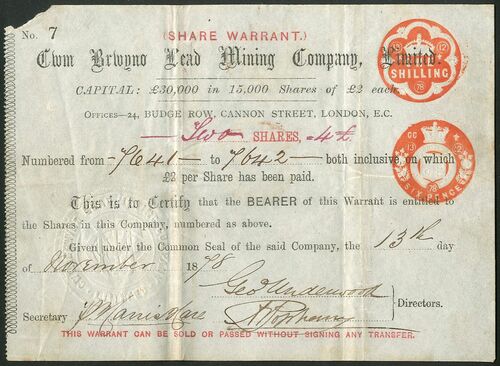 No. 7
(SHARE WARRANT.)
Cwm Brwyno Lead Mining Company, Limited.
CAPITAL: £30,000 in 15,000 Shares of £2 each.
OFFICES—24, BUDGE ROW, CANNON STREET, LONDON, E.C.
Two SHARES, 4£
Numbered from 7641 to 7642 both inclusive, on which
£2 per Share has been paid.
This is to Certify that the BEARER of this Warrant is entitled to
the Shares in this Company, numbered as above.
Given under the Common Seal of the said Company, the 13th day
of November 1878
Geo Underwood
Directors.
Secretary
THIS WARRANT CAN BE SOLD OR PASSED WITHOUT SIGNING ANY TRANSFER.
12
SHILLING
78
CC
13
12
78
SIX PENCE